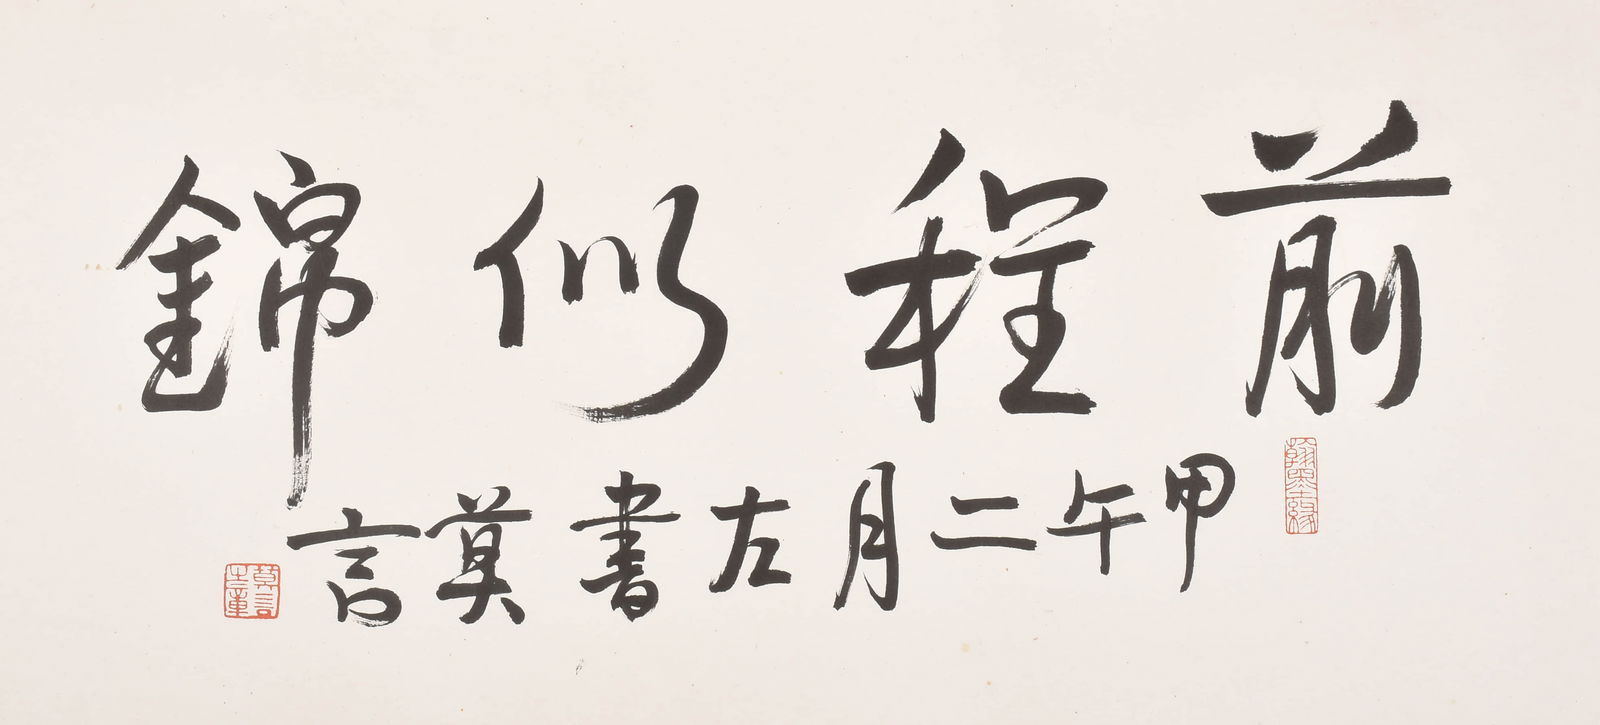 前程似錦
甲午二月左書莫言
翰墨緣
莫言之章